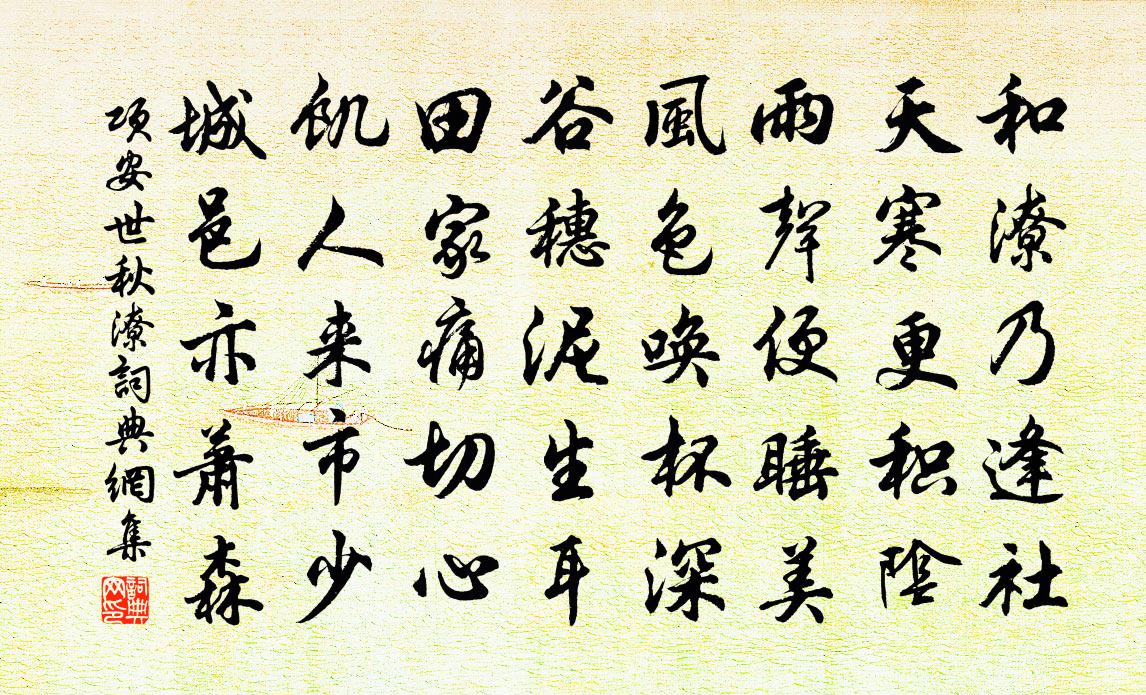 和潦乃逢社
天寒更积陰
雨聲便睡美
風色唤杯深
谷穗泥生耳
田家痛切心
飢人来市少
城邑亦蕭森
項安世秋潦詞典網集
詞典網印